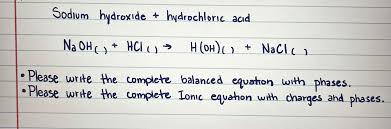 Sodium hydroxide + hydrochloric acid
NaOH( ) + HCl( ) → H(OH)( ) + NaCl( )
• Please write the complete balanced equation with phases.
• Please write the complete Ionic equation with charges and phases.